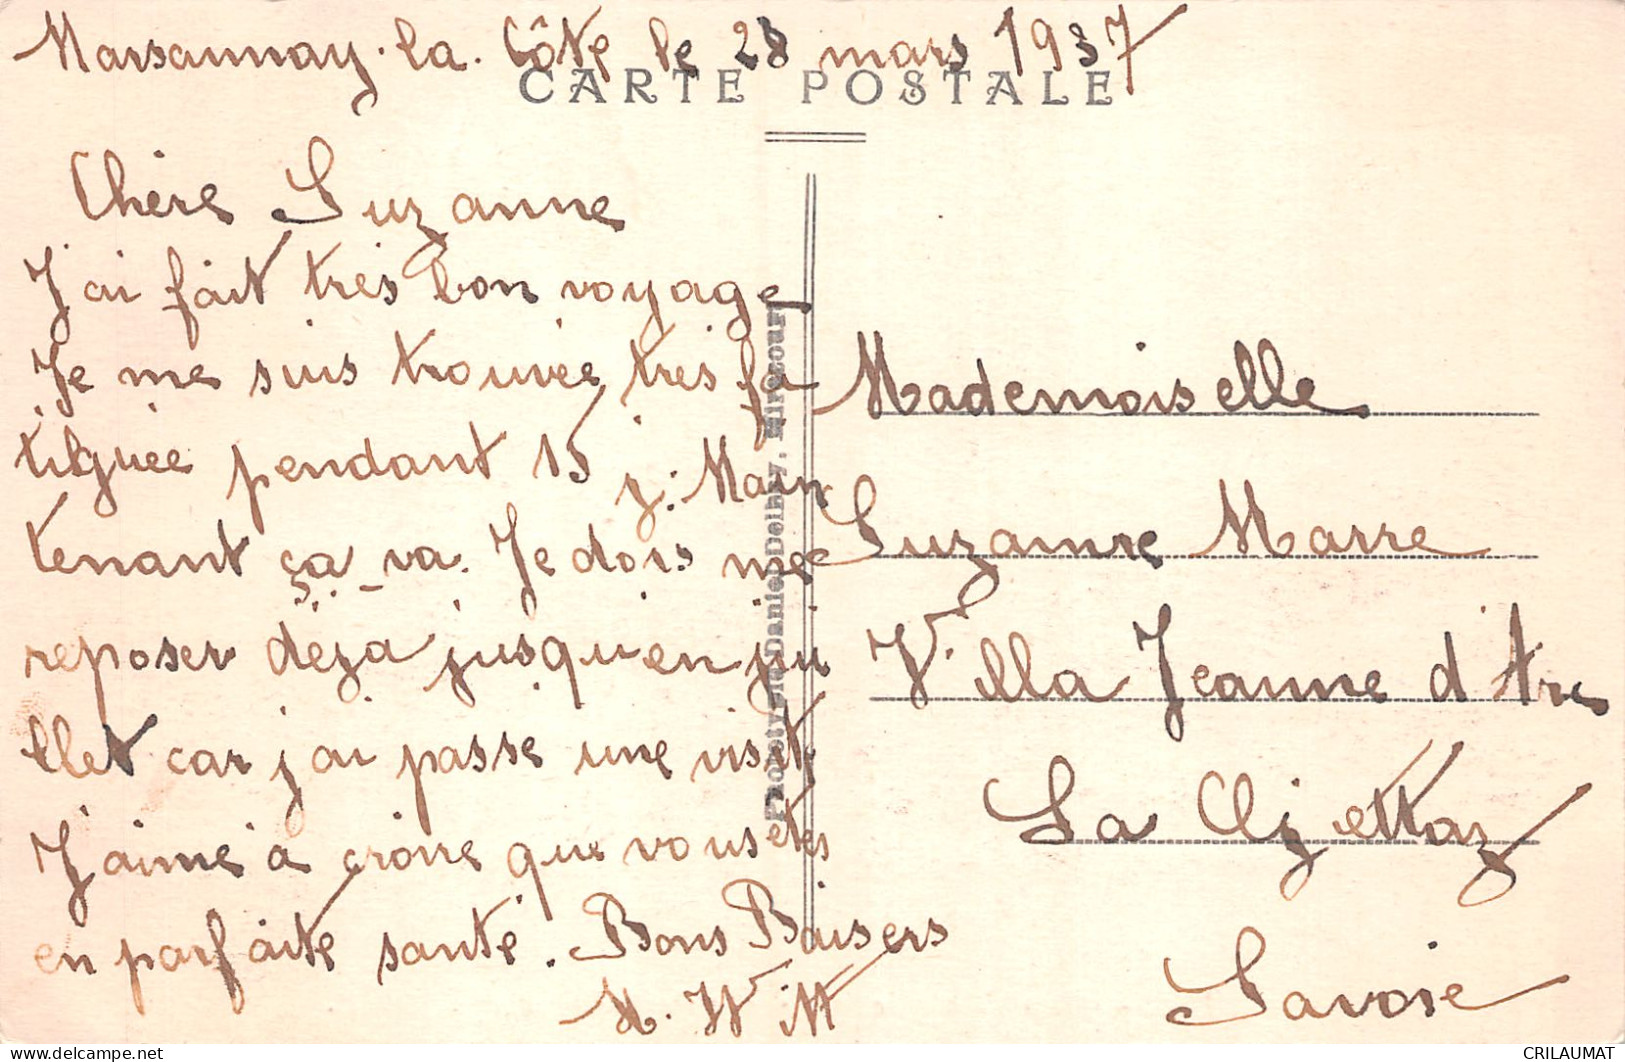 Marsannay-la-Côte le 28 mars 1937
CARTE POSTALE
Chère Suzanne
J'ai fait très bon voyage
Je me suis trouvée très fa
tiguée pendant 15 j. Main
tenant ça va. Je dois me
reposer déjà jusqu'en jui
llet car j'ai passé une visite
J'aime à croire que vous êtes
en parfaite santé. Bons Baisers
Daniel Delbey, Mirecourt
Mademoiselle
Suzanne Marre
Villa Jeanne d'Arc
La Cljettaz
Savoie
CRILAUMAT